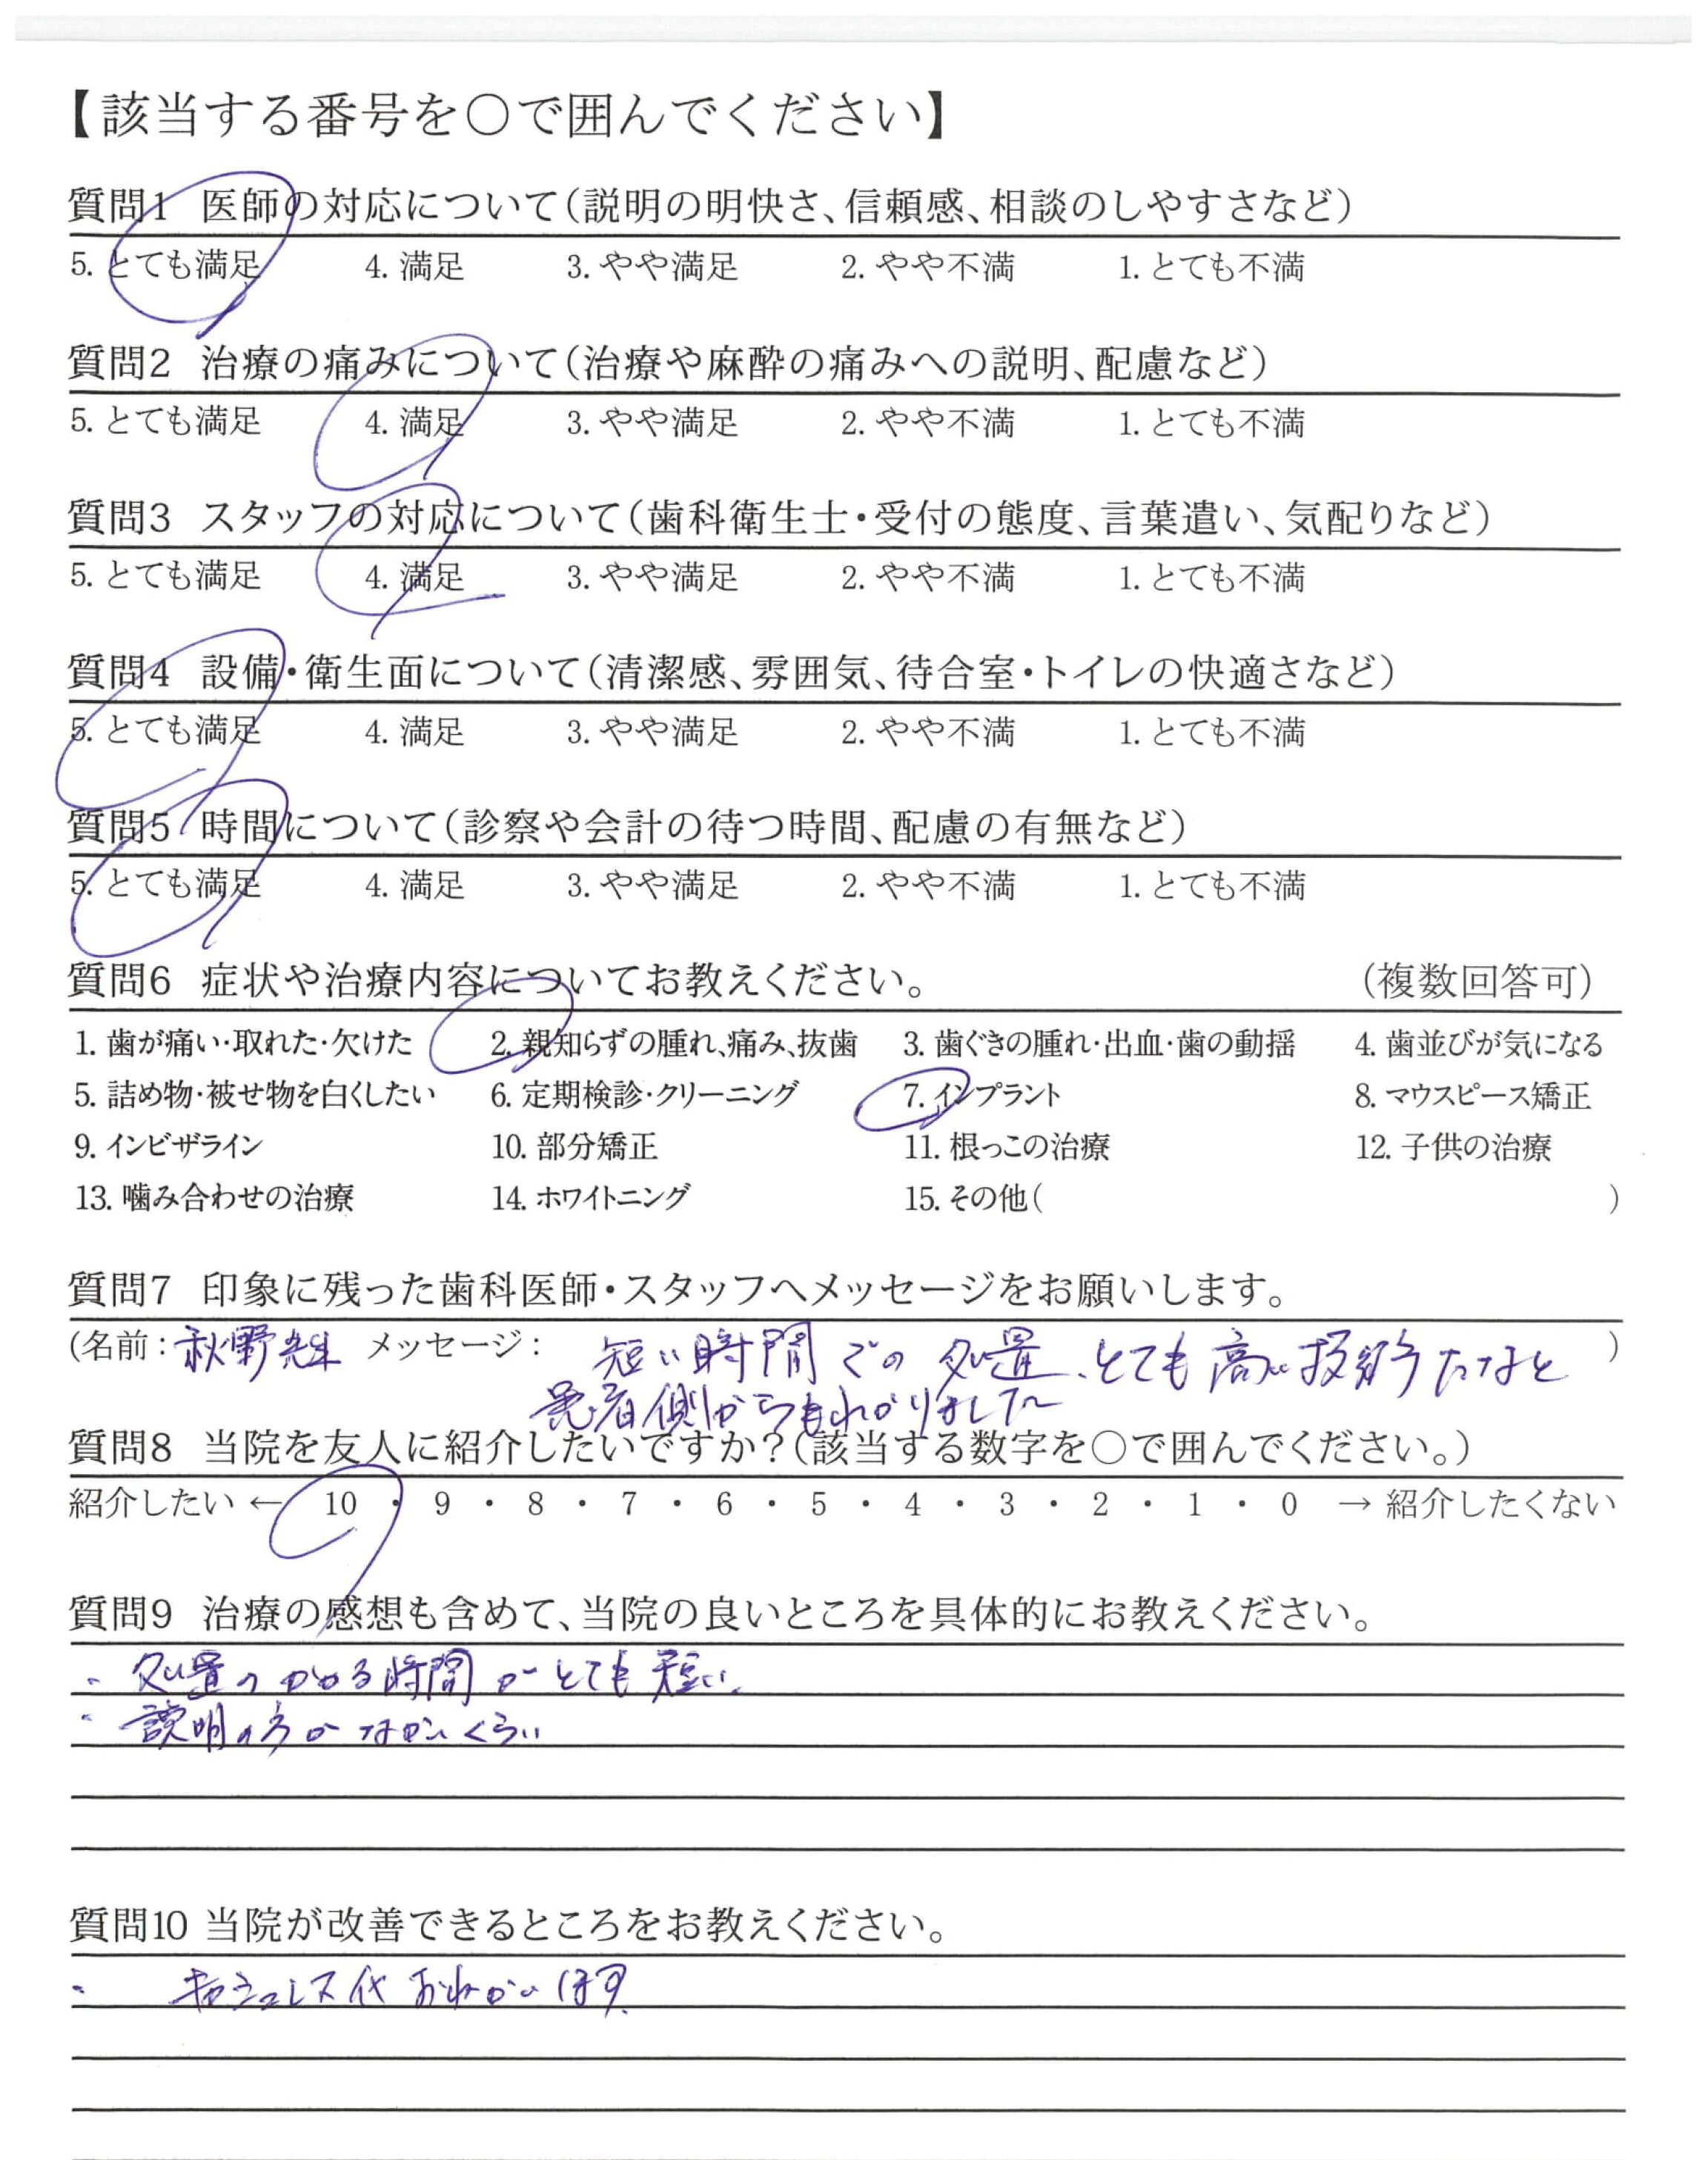 【該当する番号を○で囲んでください】
質問1 医師の対応について(説明の明快さ、信頼感、相談のしやすさなど)
5. とても満足 4. 満足 3. やや満足 2. やや不満 1. とても不満
質問2 治療の痛みについて(治療や麻酔の痛みへの説明、配慮など)
5. とても満足 4. 満足 3. やや満足 2. やや不満 1. とても不満
質問3 スタッフの対応について(歯科衛生士・受付の態度、言葉遣い、気配りなど)
5. とても満足 4. 満足 3. やや満足 2. やや不満 1. とても不満
質問4 設備・衛生面について(清潔感、雰囲気、待合室・トイレの快適さなど)
5. とても満足 4. 満足 3. やや満足 2. やや不満 1. とても不満
質問5 時間について(診察や会計の待つ時間、配慮の有無など)
5. とても満足 4. 満足 3. やや満足 2. やや不満 1. とても不満
質問6 症状や治療内容についてお教えください。 (複数回答可)
1. 歯が痛い・取れた・欠けた 2. 親知らずの腫れ、痛み、抜歯 3. 歯ぐきの腫れ・出血・歯の動揺 4. 歯並びが気になる
5. 詰め物・被せ物を白くしたい 6. 定期検診・クリーニング 7. インプラント 8. マウスピース矯正
9. インビザライン 10. 部分矯正 11. 根っこの治療 12. 子供の治療
13. 噛み合わせの治療 14. ホワイトニング 15. その他( )
質問7 印象に残った歯科医師・スタッフへメッセージをお願いします。
(名前：秋野先生 メッセージ： 短い時間での処置、とても高い技術だなと )
患者側からもわかりました
質問8 当院を友人に紹介したいですか？(該当する数字を○で囲んでください。)
紹介したい ← 10 ・ 9 ・ 8 ・ 7 ・ 6 ・ 5 ・ 4 ・ 3 ・ 2 ・ 1 ・ 0 → 紹介したくない
質問9 治療の感想も含めて、当院の良いところを具体的にお教えください。
・処置のかかる時間がとても短い。
・説明の方がながいくらい
質問10 当院が改善できるところをお教えください。
・ キャシュレス化おねがいします